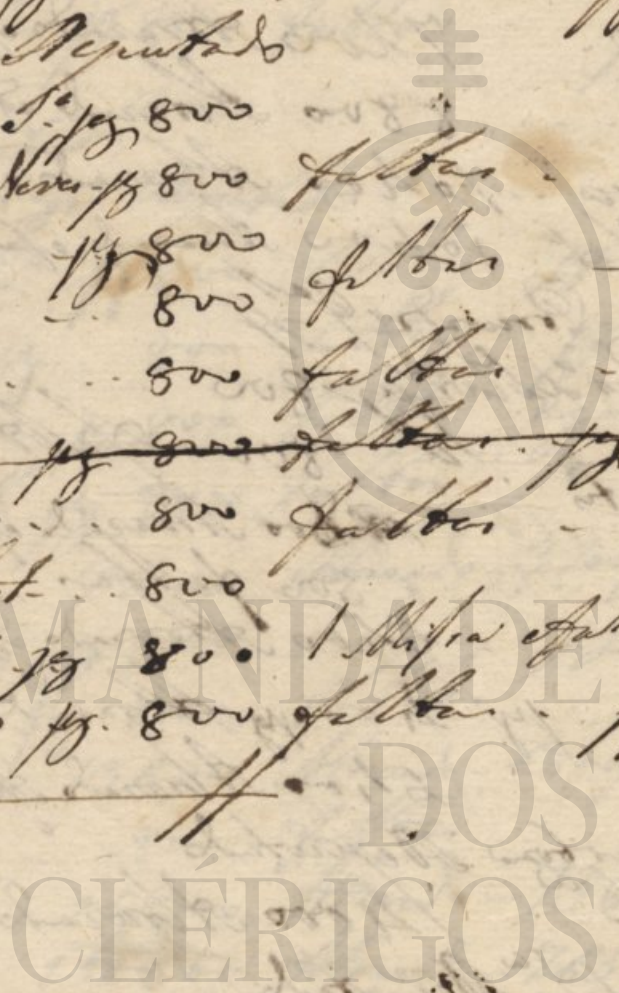 Deputado
S.ª pg 800
Neves pg 800 faltas -
pg 800
800 faltas -
800 faltas -
pg 800 faltas pg
800 faltas -
800
pg 800 1 Missa e
pg. 800 faltas .
MANDADE
DOS
CLÉRIGOS